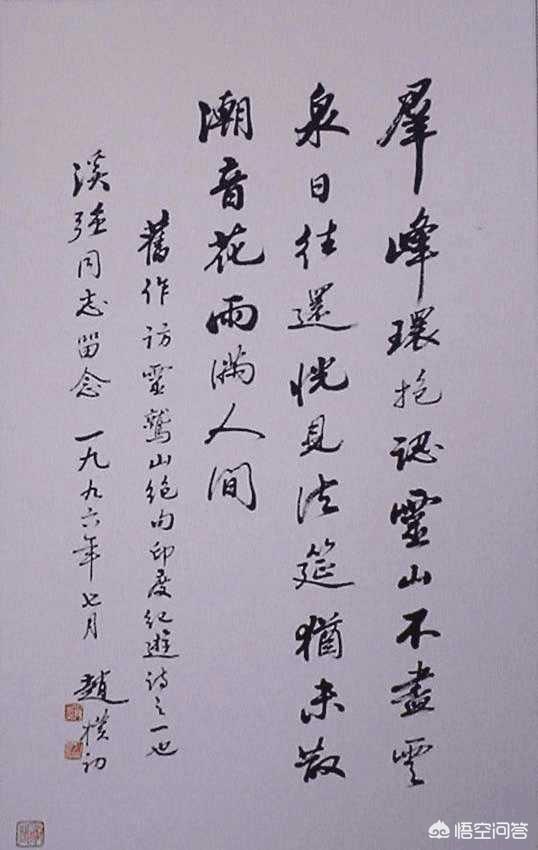 羣峰環抱認靈山不盡雲
泉日往還恍見法筵猶未散
潮音花雨滿人間
舊作訪靈鷲山絶句印度紀遊詩之一也
溪強同志留念 一九九六年七月 趙樸初
悟空问答